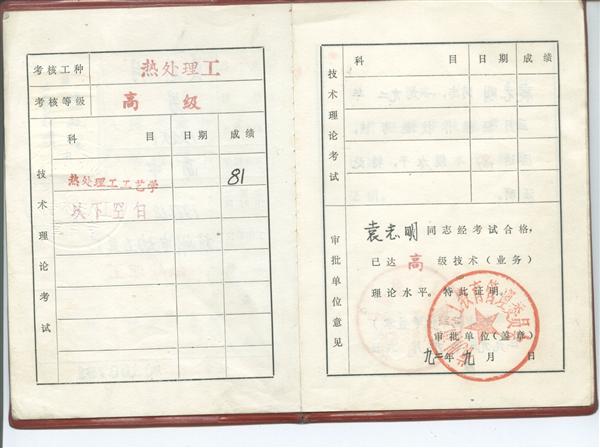 考核工种 热处理工
考核等级 高 级
技术理论考试
科 目 日期 成绩
热处理工工艺学 81
以下空白
技术理论考试
科 目 日期 成绩
审批单位意见
袁志明同志经考试合格，
已达 高 级技术（业务）
理论水平。特此证明。
审批单位（盖章）
九二年九月 日